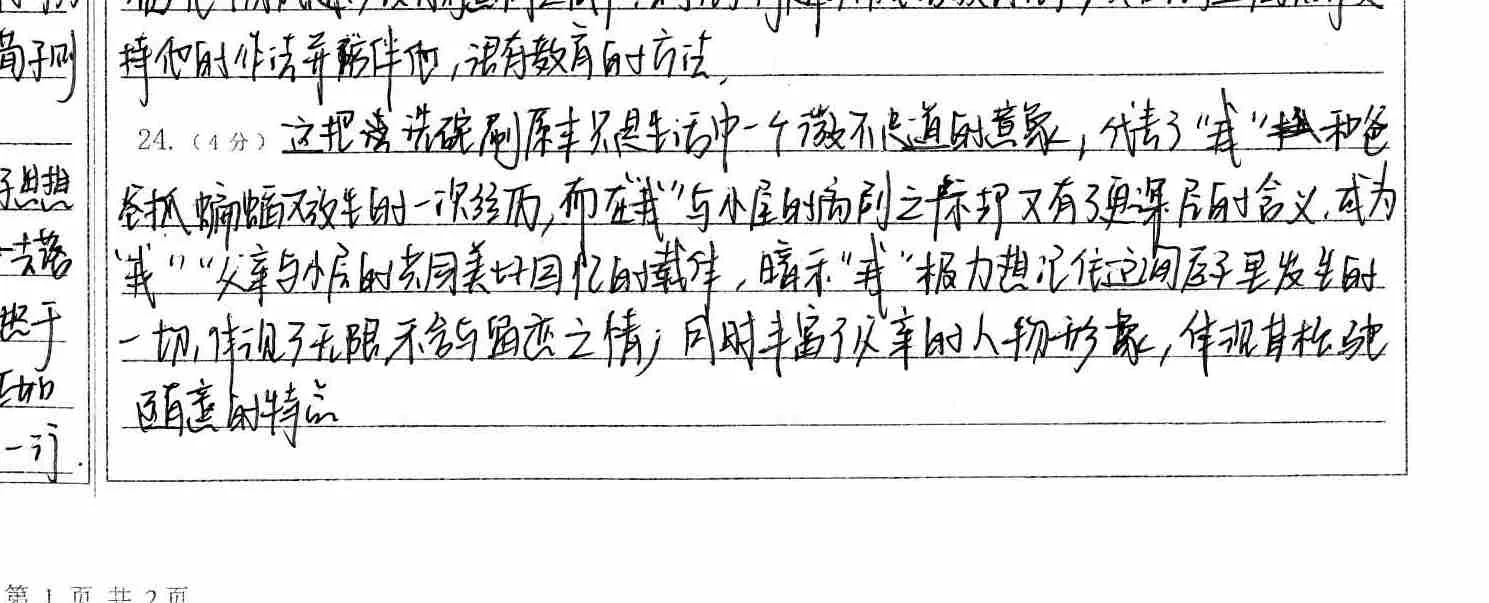 荀子则
持他的作法并陪伴他，很有教育的方法，
24.（4分）这把洗碗刷原本只是生活中一个微不足道的意象，代表了“我”和爸
思想
爸抓蝙蝠又放生的一次经历，而在“我”与小屋的离别之际却又有了更深层的含义，成为
“我”“父亲与小屋的共同美好回忆的载体，暗示“我”极力想记住这间屋子里发生的
一切，体现了无限不舍与留恋之情；同时丰富了父亲的人物形象，体现其
的特点
第 1 页 共 2 页